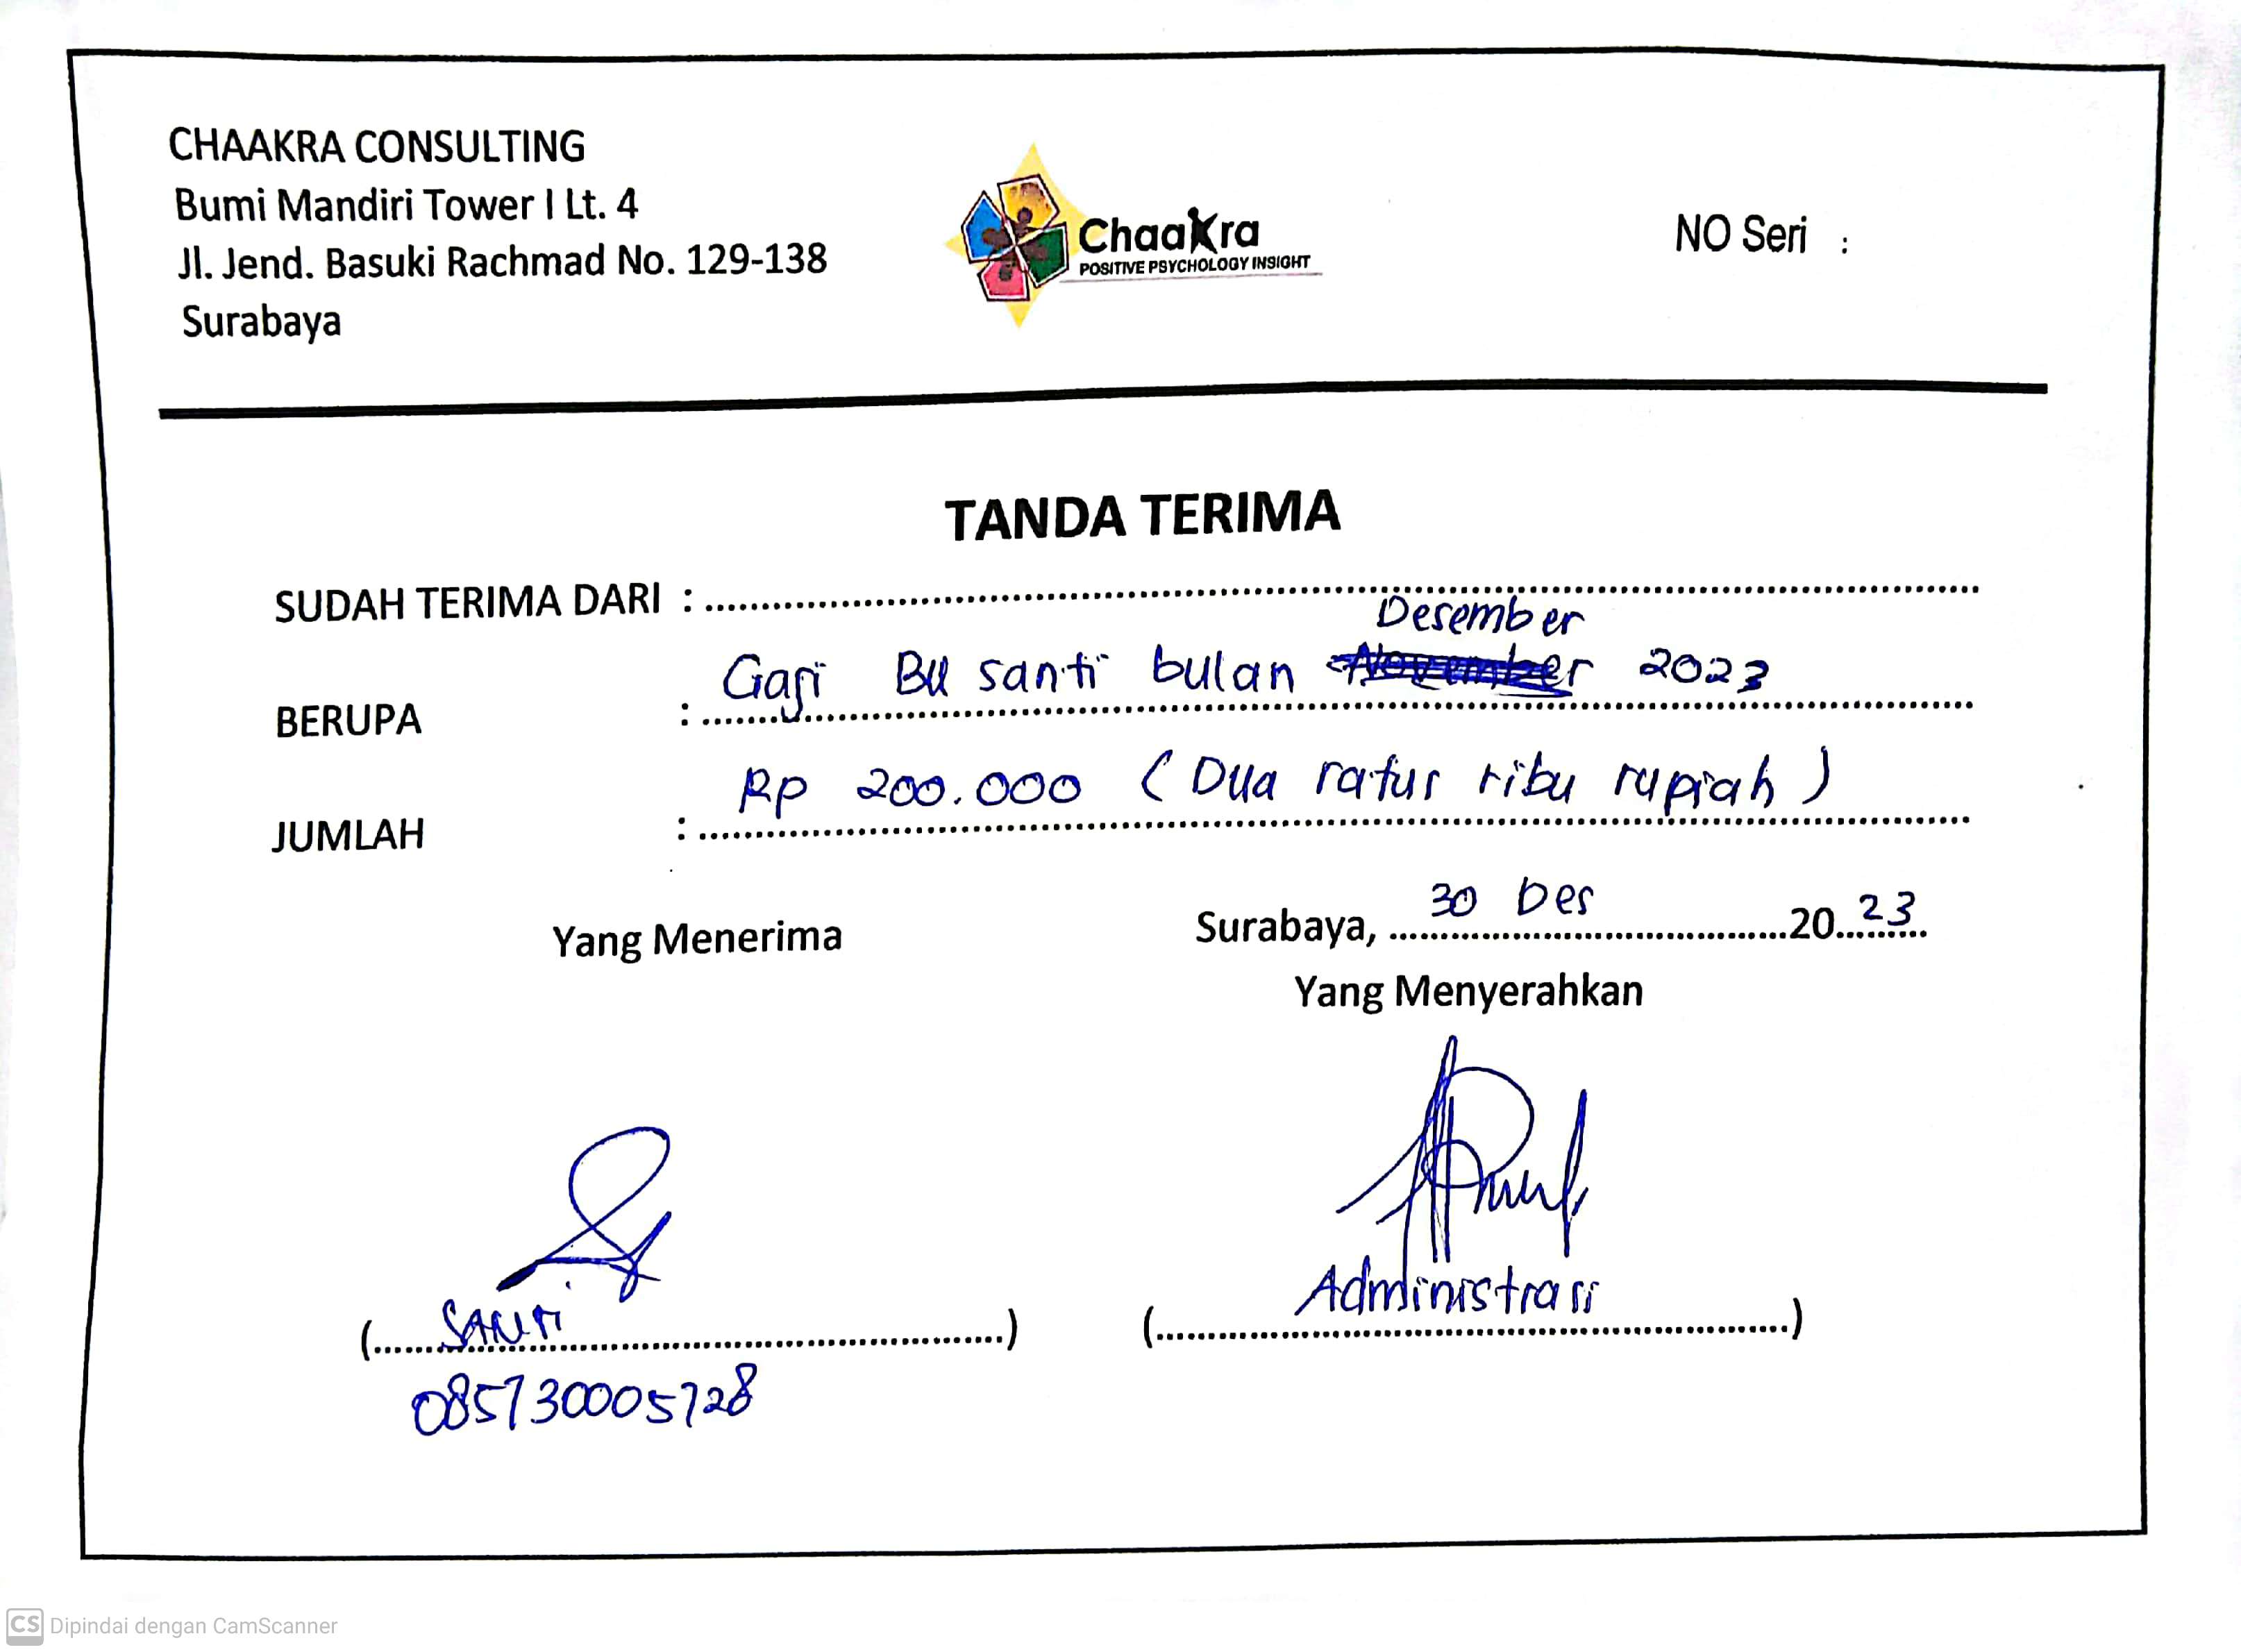 CHAAKRA CONSULTING
Bumi Mandiri Tower I Lt. 4
Jl. Jend. Basuki Rachmad No. 129-138
Surabaya
Chaakra
POSITIVE PSYCHOLOGY INSIGHT
NO Seri :
TANDA TERIMA
SUDAH TERIMA DARI :
Desember
BERUPA : Gaji Bu santi bulan November 2023
JUMLAH : Rp 200.000 (Dua ratus ribu rupiah)
Surabaya, 30 Des 2023
Yang Menerima
Yang Menyerahkan
(SANTI)
(Administrasi)
085730005728
CS Dipindai dengan CamScanner